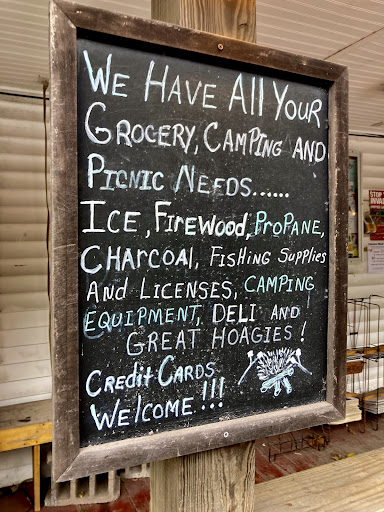 We Have All Your
Grocery, Camping and
Picnic Needs......
Ice, Firewood, Propane,
Charcoal, Fishing Supplies
And Licenses, Camping
Equipment, Deli and
Great Hoagies!
Credit Cards
Welcome!!!
STOP